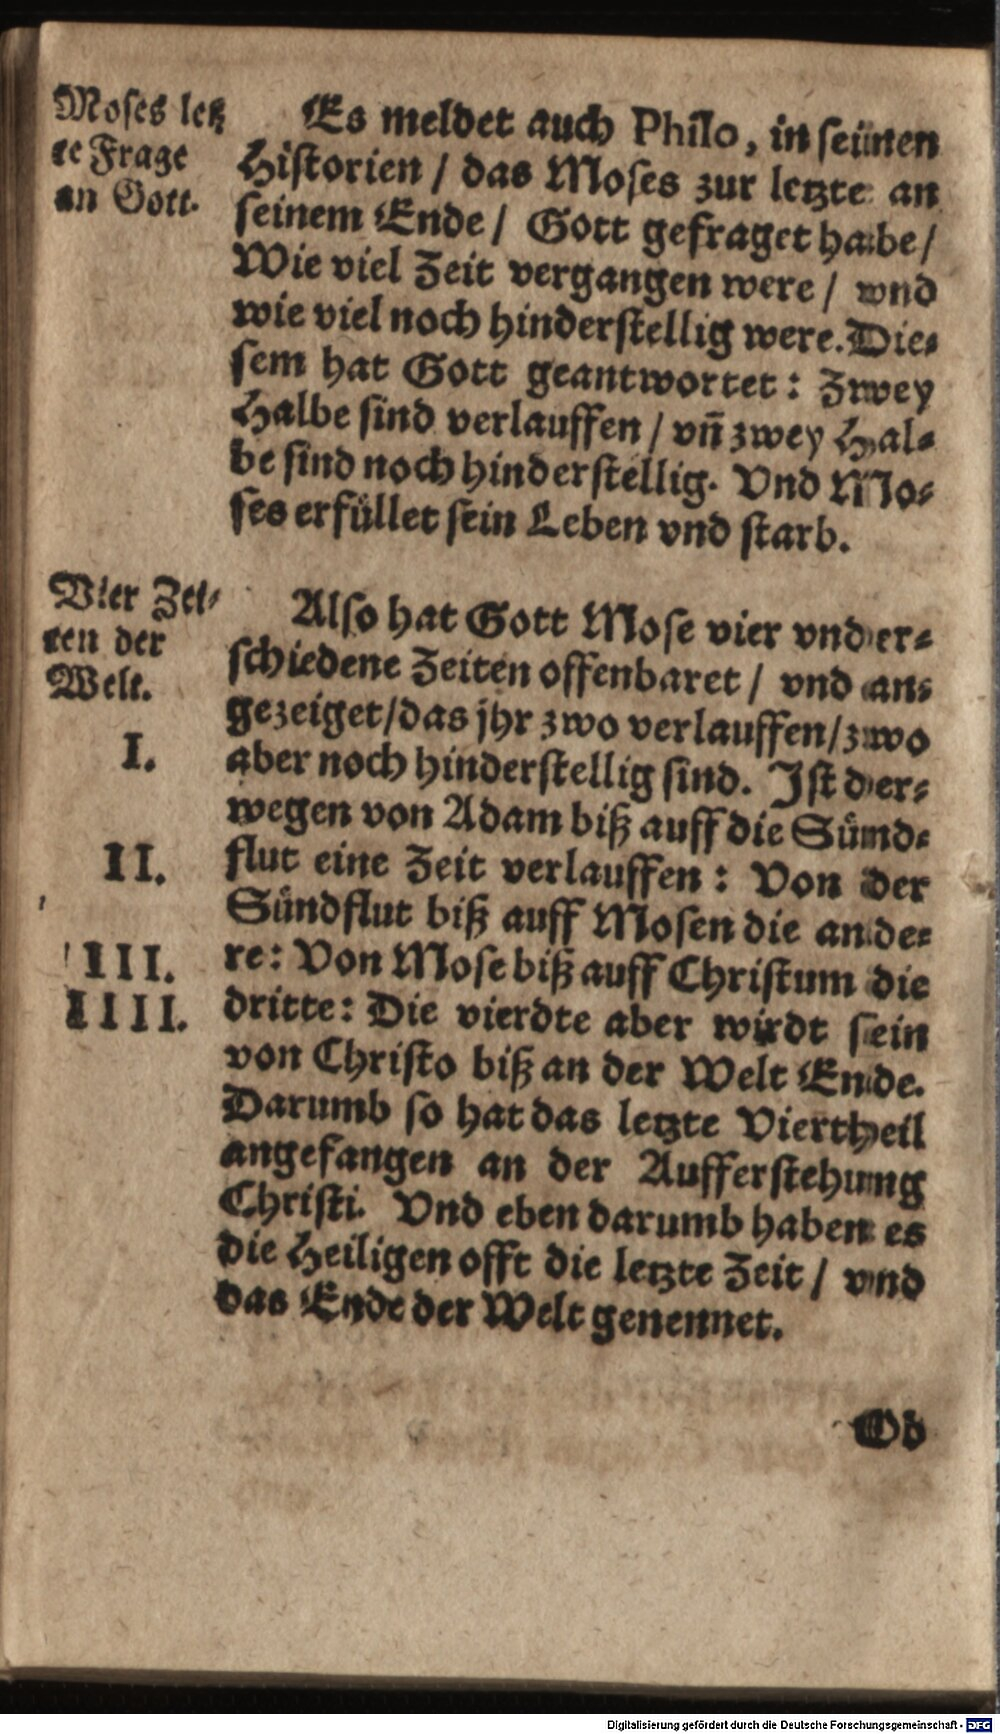 Moses letz
te Frage
an Gott.
Es meldet auch Philo, in seinen
Historien / das Moses zur letzte an
seinem Ende / Gott gefraget habe /
Wie viel Zeit vergangen were / vnd
wie viel noch hinderstellig were. Die-
sem hat Gott geantwortet: Zwey
Halbe sind verlauffen / vn̄ zwey Hal-
be sind noch hinderstellig. Vnd Mo-
ses erfüllet sein Leben vnd starb.
Vier Zei-
ten der
Welt.
I.
II.
III.
IIII.
Also hat Gott Mose vier vnder-
schiedene Zeiten offenbaret / vnd an-
gezeiget / das jhr zwo verlauffen / zwo
aber noch hinderstellig sind. Ist der-
wegen von Adam biß auff die Sünd-
flut eine Zeit verlauffen: Von der
Sündflut biß auff Mosen die ande-
re: Von Mose biß auff Christum die
dritte: Die vierdte aber wirdt sein
von Christo biß an der Welt Ende.
Darumb so hat das letzte Viertheil
angefangen an der Aufferstehung
Christi. Vnd eben darumb haben es
die Heiligen offt die letzte Zeit / vnd
das Ende der Welt genennet.
Ob
Digitalisierung gefördert durch die Deutsche Forschungsgemeinschaft - DFG